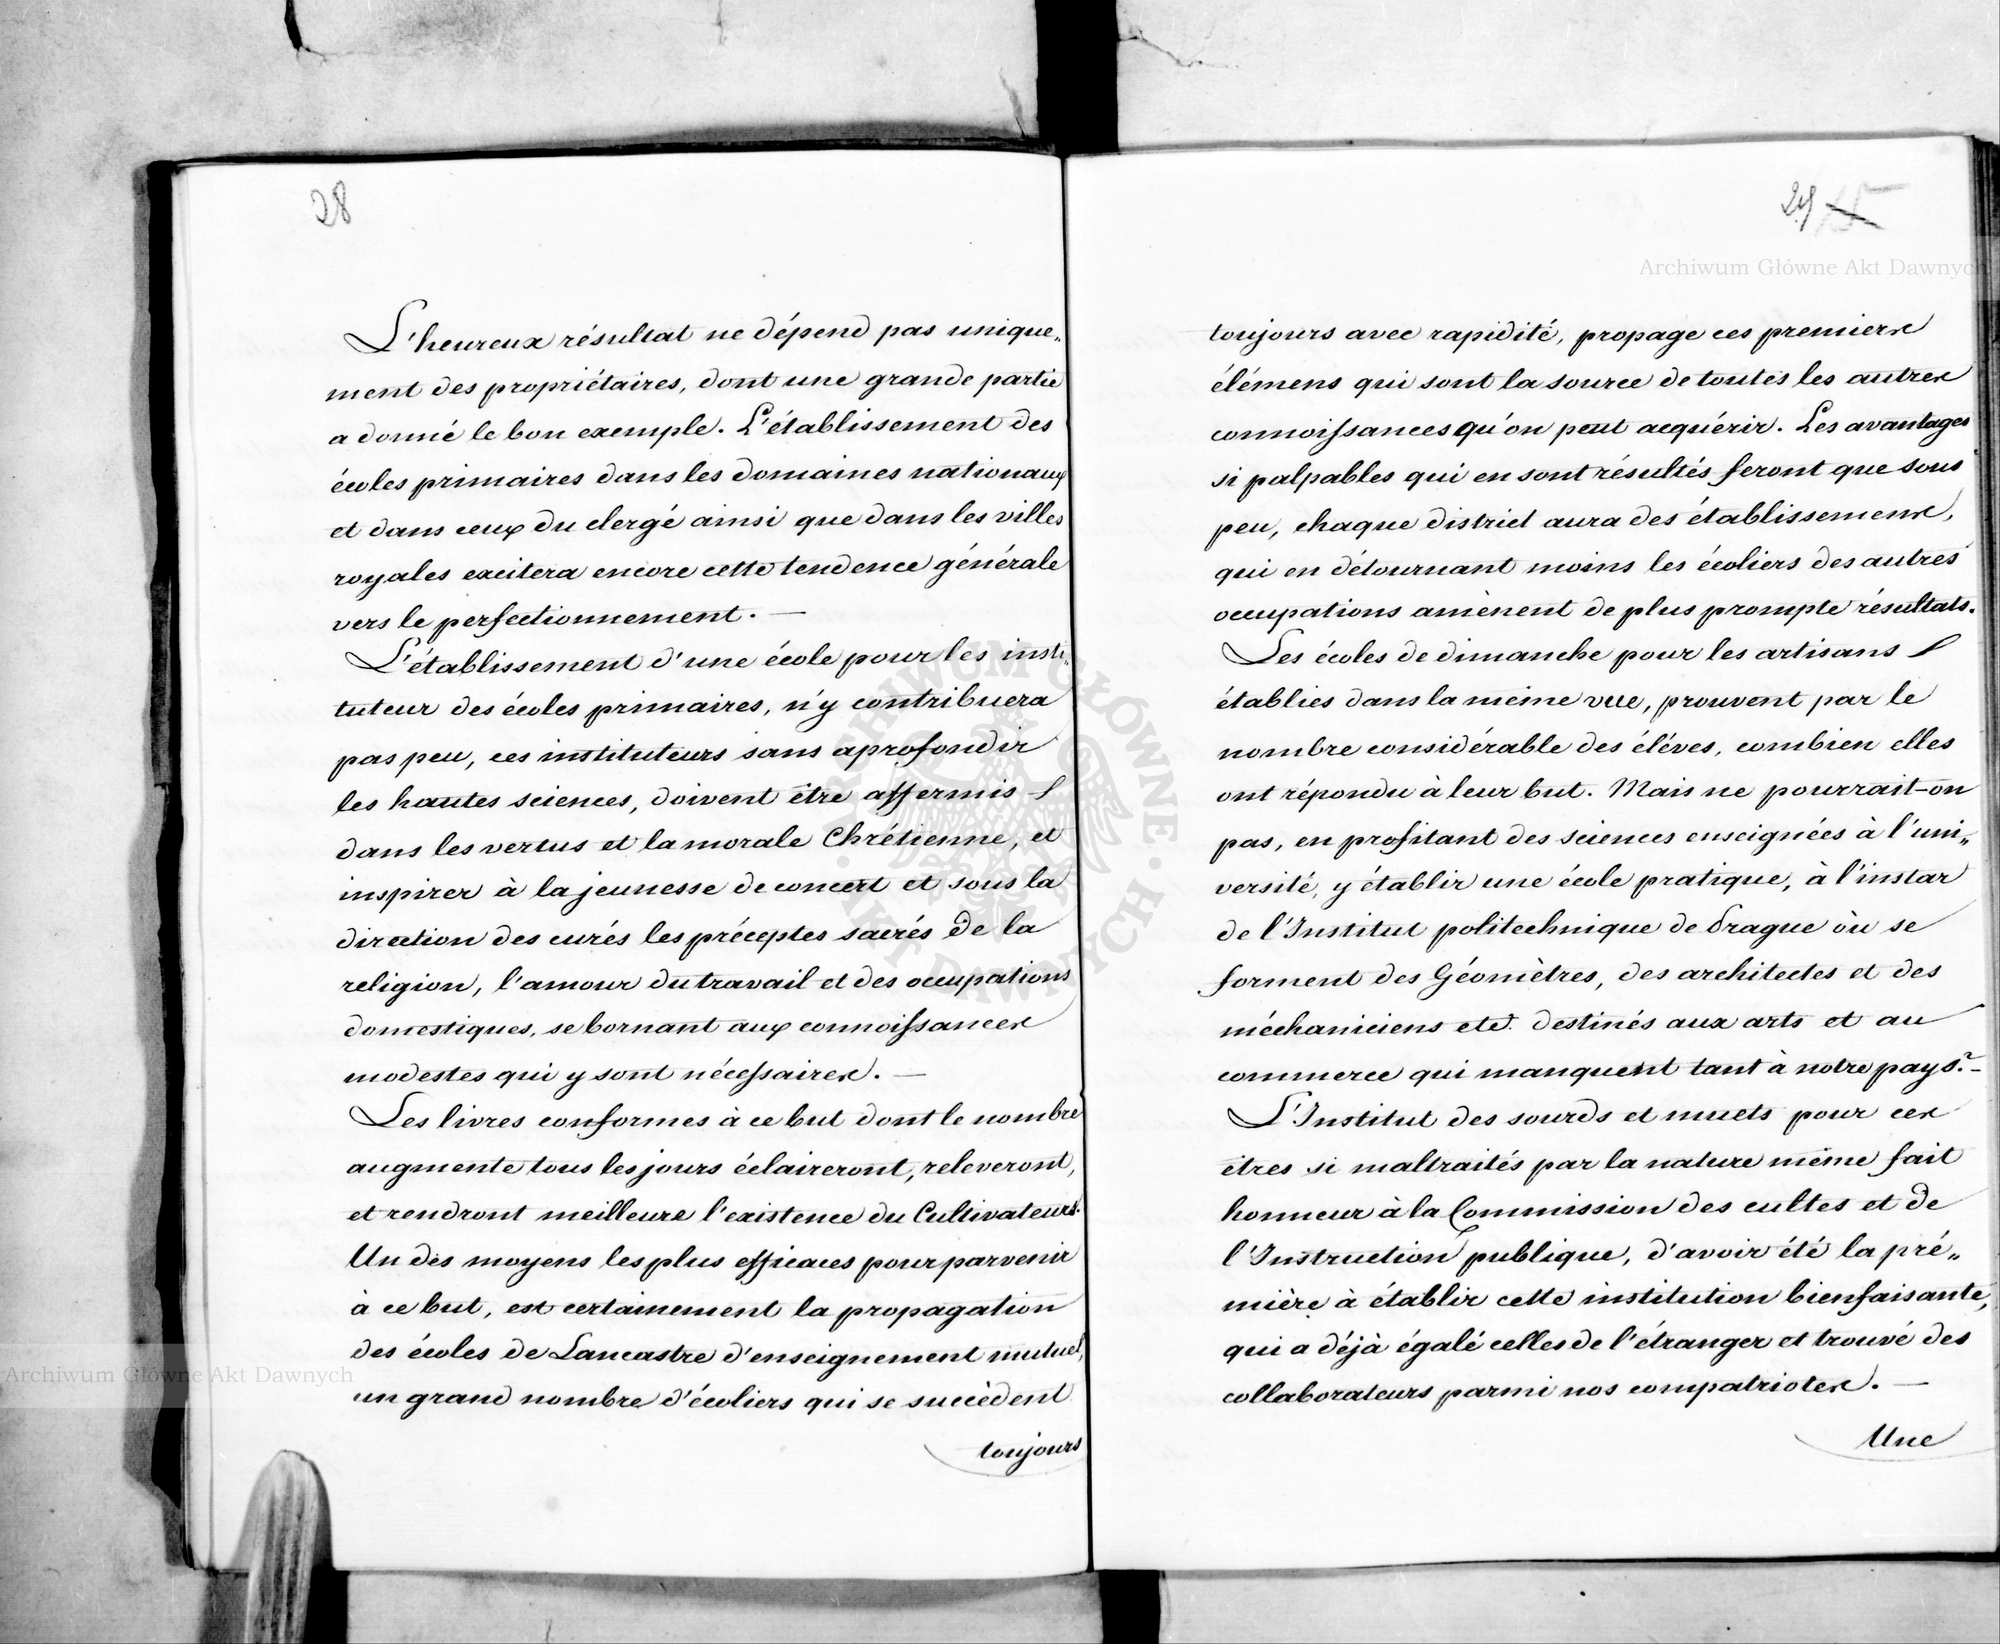 28
L'heureux résultat ne dépend pas unique„
ment des propriétaires, dont une grande partie
a donné le bon exemple. L'établissement des
écoles primaires dans les domaines nationaux
et dans ceux du clergé ainsi que dans les villes
royales excitera encore cette tendence générale
vers le perfectionnement. —
L'établissement d'une école pour les insti„
tuteur des écoles primaires, n'y contribuera
pas peu, ces instituteurs sans aprofondir
les hautes sciences, doivent être affermis
dans les vertus et la morale Chrétienne, et
inspirer à la jeunesse de concert et sous la
direction des curés les préceptes sacrés de la
religion, l'amour du travail et des occupations
domestiques, se bornant aux connoissances
modestes qui y sont nécessaires. —
Les livres conformes à ce but dont le nombre
augmente tous les jours éclaireront, releveront,
et rendront meilleure l'existence du Cultivateurs.
Un des moyens les plus efficaces pour parvenir
à ce but, est certainement la propagation
des écoles de Lancastre d'enseignement mutuel,
un grand nombre d'écoliers qui se succèdent
toujours
29 15
toujours avec rapidité, propage ces premiers
élémens qui sont la source de toutes les autres
connoissances qu'on peut acquérir. Les avantages
si palpables qui en sont résultés feront que sous
peu, chaque district aura des établissemens,
qui en détournant moins les écoliers des autres
occupations amènent de plus prompte résultats.
Les écoles de dimanche pour les artisans
établies dans la même vue, prouvent par le
nombre considérable des élèves, combien elles
ont répondu à leur but. Mais ne pourrait-on
pas, en profitant des sciences enseignées à l'uni„
versité, y établir une école pratique, à l'instar
de l'Institut politechnique de Prague où se
forment des Géomètres, des architectes et des
méchaniciens etc. destinés aux arts et au
commerce qui manquent tant à notre pays? —
L'Institut des sourds et muets pour ces
êtres si maltraités par la nature même fait
honneur à la Commission des cultes et de
l'Instruction publique, d'avoir été la pré„
mière à établir cette institution bienfaisante,
qui a déjà égalé celles de l'étranger et trouvé des
collaborateurs parmi nos compatriotes. —
Une
Archiwum Główne Akt Dawnych
Archiwum Główne Akt Dawnych
ARCHIWUM GŁÓWNE · AKT DAWNYCH ·